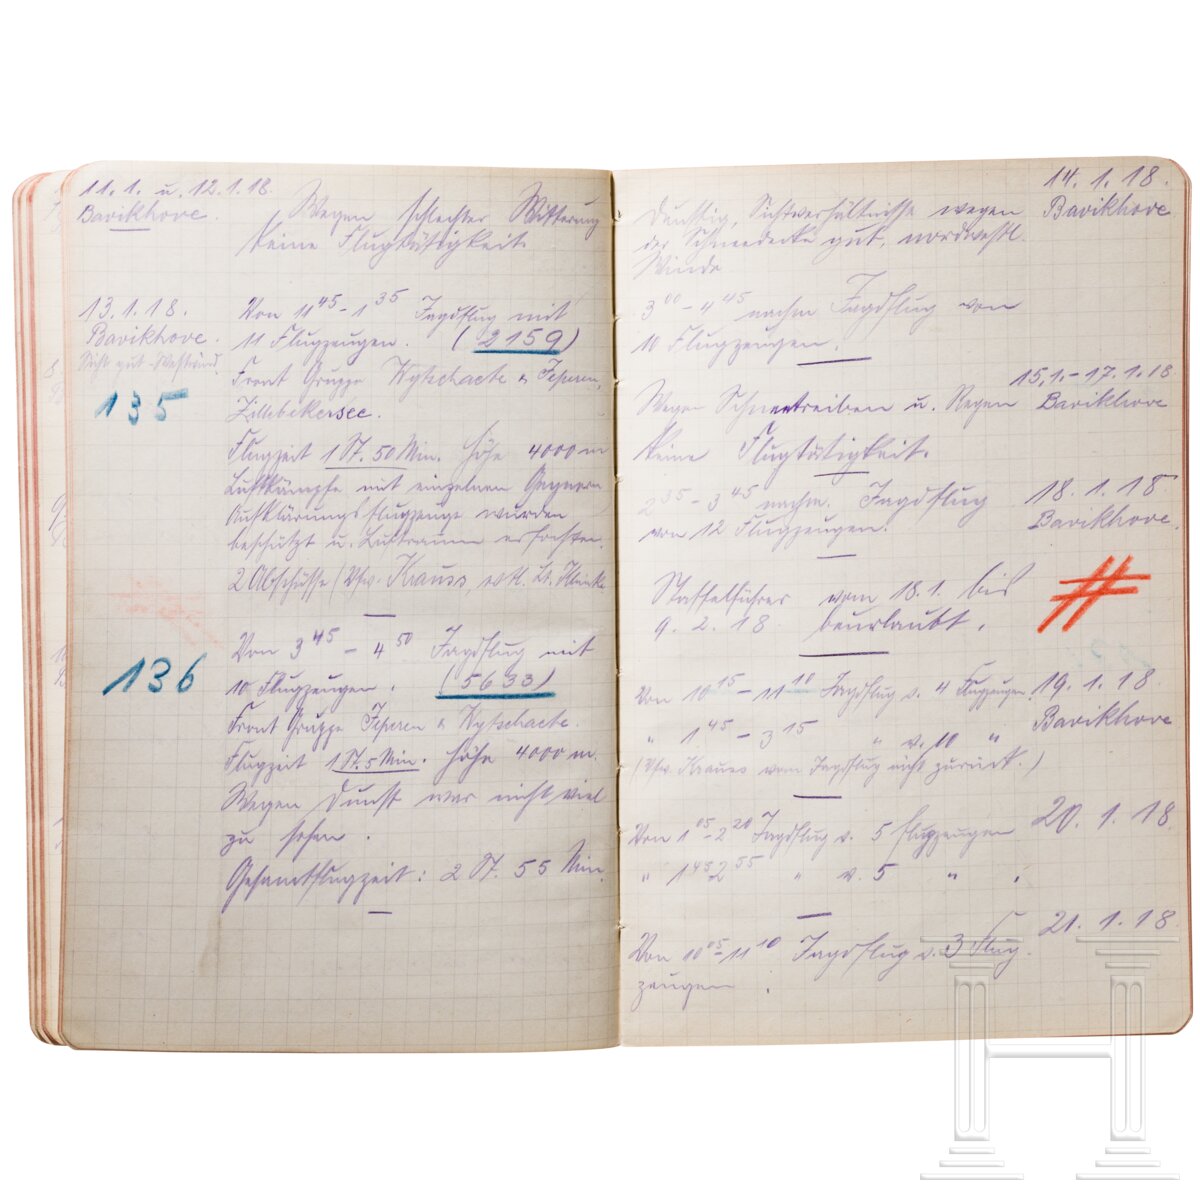 11.1. u. 12.1.18.
Bavikhove.
Wegen schlechter Witterung
keine Flugtätigkeit.
13.1.18.
Bavikhove.
Sicht gut - Westwind.
135
Von 11 45 - 1 35 Jagdflug mit
11 Flugzeugen. (2159)
Front Gruppe Wytschaete u. Ieperen,
Zillebekersee.
Flugzeit 1 St. 50 Min. Höhe 4000 m
Luftkämpfe mit einzelnen Gegnern
Aufklärungsflugzeuge wurden
beschützt u. Luftraum erfochten.
2 Abschüsse (Vfw. Krauss, Lt. Klinke
136
Von 3 45 - 4 50 Jagdflug mit
10 Flugzeugen. (5633)
Front Gruppe Ieperen u. Wytschaete.
Flugzeit 1 St. 5 Min. Höhe 4000 m.
Wegen Dunst war nicht viel
zu sehen.
Gesamtflugzeit: 2 St. 55 Min.
14.1.18.
Bavikhove
Dunstig, Sichtverhältnisse wegen
der Schneedecke gut, nordwestl.
Winde
3 00 - 4 45 nachm Jagdflug von
10 Flugzeugen.
15.1.-17.1.18
Bavikhove
Wegen Schneetreiben u. Regen
keine Flugtätigkeit.
18.1.18
Bavikhove.
2 35 - 3 45 nachm. Jagdflug
von 12 Flugzeugen.
Staffelführer vom 18.1. bis
9.2.18 beurlaubt.
19.1.18
Bavikhove
Von 10 15 - 11 10 Jagdflug v. 4 Flugzeugen
" 1 45 - 3 15 " v. 10 "
(Vfw. Krauss vom Jagdflug nicht zurück.)
20.1.18
Von 1 05 - 2 20 Jagdflug v. 5 Flugzeugen
" 1 45 2 55 " v. 5 "
21.1.18
Von 10 05 - 11 10 Jagdflug v. 3 Flug
zeugen.